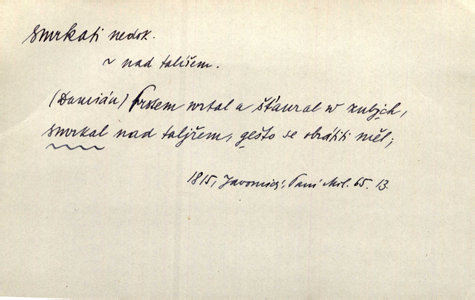 smrkati nedok.
~ nad talířem.
(Damián) Prstem wrtal a šťaural w zubých,
smrkal nad taljřem, gešto se obrátiti měl;
1815, Javornický, Paní Mol. 65. 13.